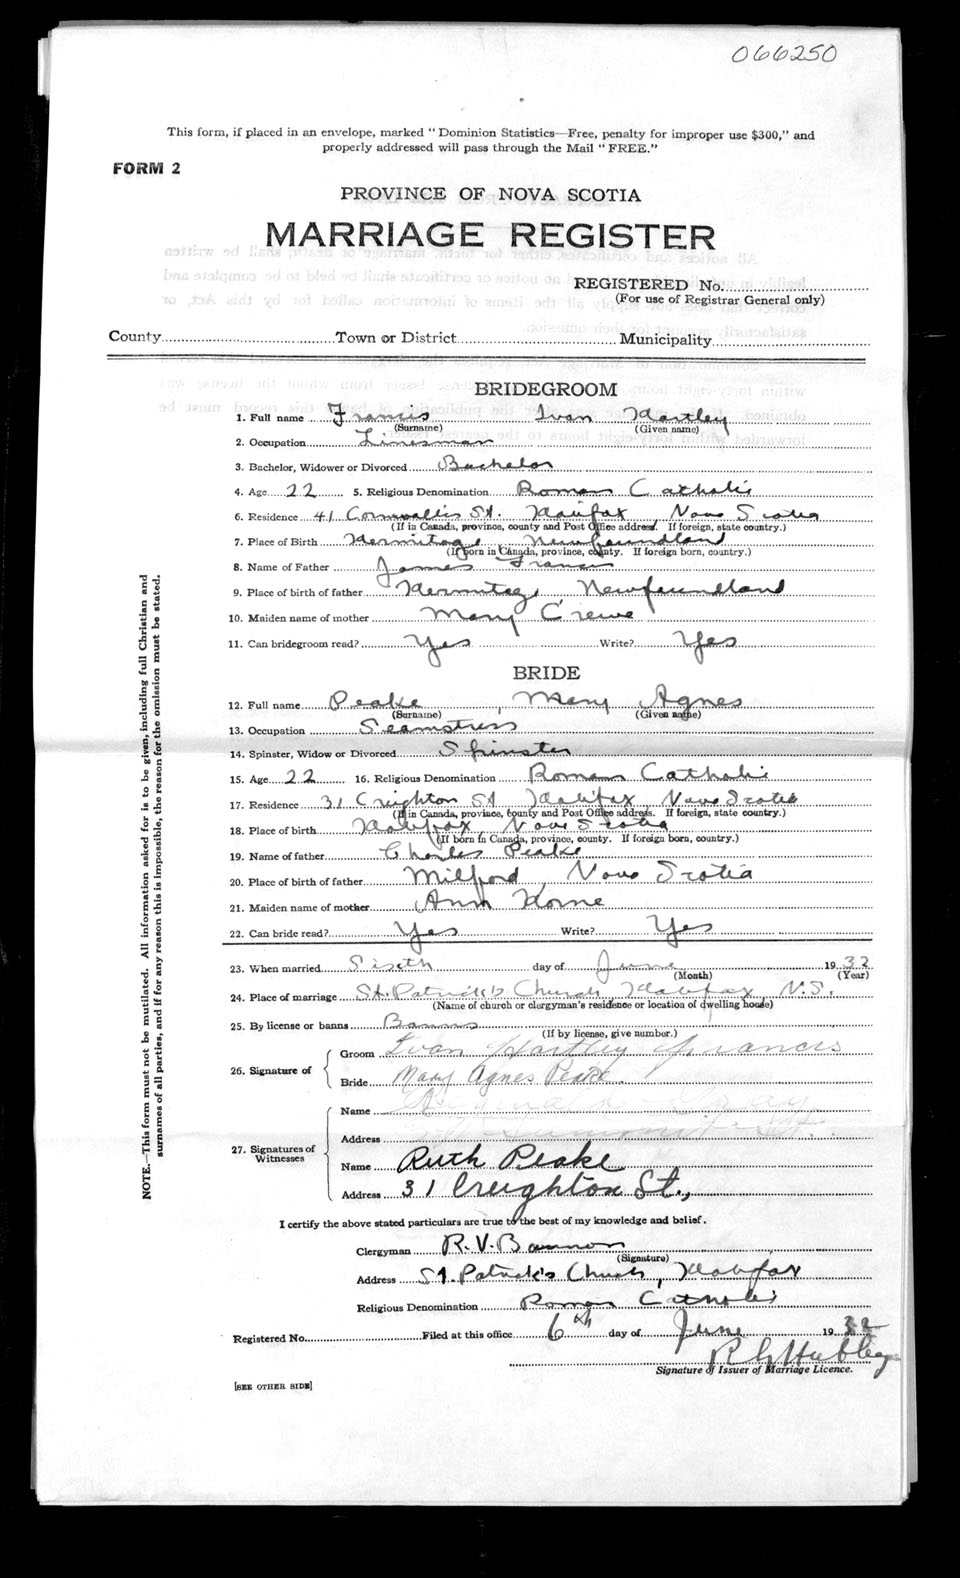 066250
This form, if placed in an envelope, marked "Dominion Statistics—Free, penalty for improper use $300," and
properly addressed will pass through the Mail "FREE."
FORM 2
PROVINCE OF NOVA SCOTIA
MARRIAGE REGISTER
REGISTERED No.
(For use of Registrar General only)
County Town or District Municipality
BRIDEGROOM
1. Full name Francis Ivan Hartley
(Surname) (Given name)
2. Occupation Linesman
3. Bachelor, Widower or Divorced Bachelor
4. Age 22 5. Religious Denomination Roman Catholic
6. Residence 41 Cornwallis St. Halifax Nova Scotia
(If in Canada, province, county and Post Office address. If foreign, state country.)
7. Place of Birth Hermitage Newfoundland
(If born in Canada, province, county. If foreign born, country.)
8. Name of Father James Francis
9. Place of birth of father Hermitage, Newfoundland
10. Maiden name of mother Mary Crewe
11. Can bridegroom read? Yes Write? Yes
BRIDE
12. Full name Peake, Mary Agnes
(Surname) (Given name)
13. Occupation Seamstress
14. Spinster, Widow or Divorced Spinster
15. Age 22 16. Religious Denomination Roman Catholic
17. Residence 31 Creighton St Halifax Nova Scotia
(If in Canada, province, county and Post Office address. If foreign, state country.)
18. Place of birth Halifax, Nova Scotia
(If born in Canada, province, county. If foreign born, country.)
19. Name of father Charles Peake
20. Place of birth of father Milford, Nova Scotia
21. Maiden name of mother Ann Horne
22. Can bride read? Yes Write? Yes
23. When married Sixth day of June 1932
(Month) (Year)
24. Place of marriage St. Patrick's Church Halifax N.S.
(Name of church or clergyman's residence or location of dwelling house)
25. By license or banns Banns
(If by license, give number.)
26. Signature of Groom Ivan Hartley Francis
Bride Mary Agnes Peake.
27. Signatures of Witnesses
Name
Address St.
Name Ruth Peake
Address 31 Creighton St.,
I certify the above stated particulars are true to the best of my knowledge and belief.
Clergyman R. V. Bannon
(Signature)
Address St. Patrick's Church, Halifax
Religious Denomination Roman Catholic
Registered No. Filed at this office 6th day of June 1932
Signature of Issuer of Marriage Licence.
[SEE OTHER SIDE]
NOTE.—This form must not be mutilated. All information asked for is to be given, including full Christian and
surnames of all parties, and if for any reason this is impossible, the reason for the omission must be stated.